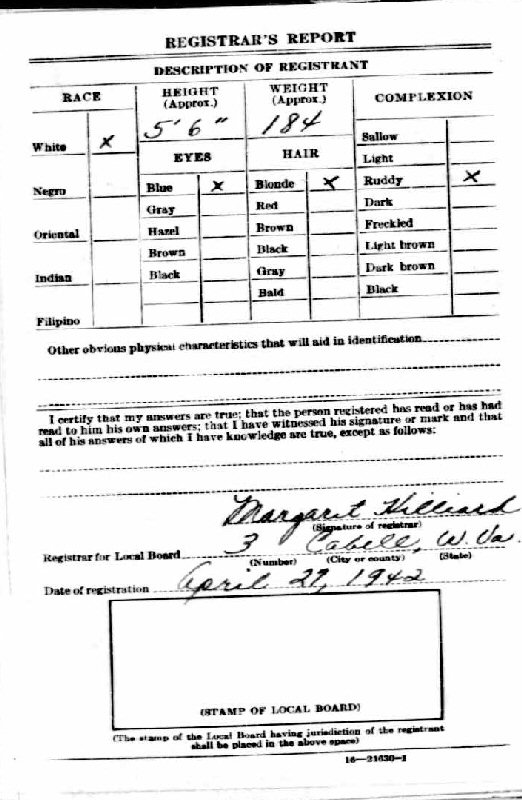 REGISTRAR'S REPORT
DESCRIPTION OF REGISTRANT
RACE HEIGHT (Approx.) WEIGHT (Approx.) COMPLEXION
5' 6" 184
White X EYES HAIR Sallow
Light
Negro Blue X Blonde X Ruddy X
Gray Red Dark
Oriental Hazel Brown Freckled
Brown Black Light brown
Indian Black Gray Dark brown
Bald Black
Filipino
Other obvious physical characteristics that will aid in identification
I certify that my answers are true; that the person registered has read or has had
read to him his own answers; that I have witnessed his signature or mark and that
all of his answers of which I have knowledge are true, except as follows:
Margaret Hilliard
(Signature of registrar)
Registrar for Local Board 3 Cabell, W. Va.
(Number) (City or county) (State)
Date of registration April 27, 1942
(STAMP OF LOCAL BOARD)
(The stamp of the Local Board having jurisdiction of the registrant
shall be placed in the above space)
16—21630-1